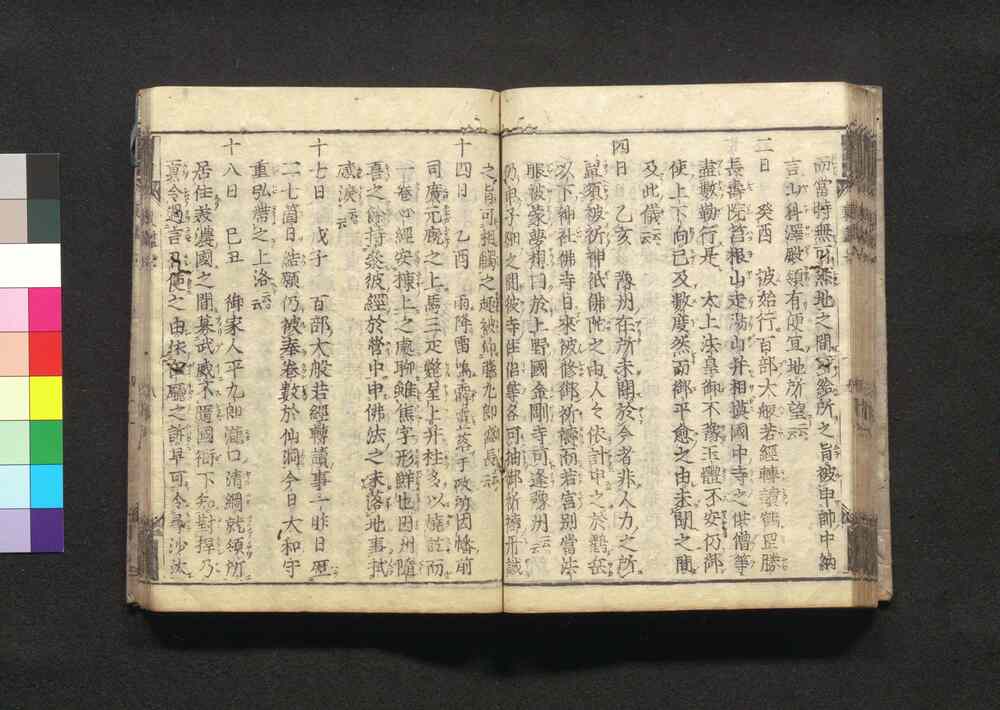 而當時無可然地之間分給所之旨被申帥中納
言山科澤殿領有便宜地所望云云
二日 癸酉 被始行百部大般若經轉讀鶴岡勝
長壽院筥根山走湯山并相摸國中寺之供僧等
盡數勤行是 太上法皇御不豫玉體不安仍御
使上下向已及數度然而御平愈之由未聞之間
及此儀云云
四日 乙亥 豫州在所未聞於今者非人力之所
覃須被祈神祇佛陀之由人々依計申之於鶴岳
以下神社佛寺日來被修御祈禱而若宮別當法
眼被蒙夢想曰於上野國金剛寺可逢豫州云云
仍
之旨可相觸之趣被仰藤九郎盛長云云
十四日 乙酉 雨降雷鳴霹靂落于政所因幡前
司廣元廐之上馬三疋斃
喜之餘持參彼經於營中申佛法之未落地事拭
感淚云云
十七日 戊子 百部大般若經轉讀事一昨日
二七箇日結願仍被奉卷數於仙洞今日大和守
重弘帶之上洛云云
十八日 己丑 御家人平九郎瀧口清綱就領所
居住美濃國之間募武威不隨國衙下知對捍乃
貢令過言在廳之許早可令尋沙汰